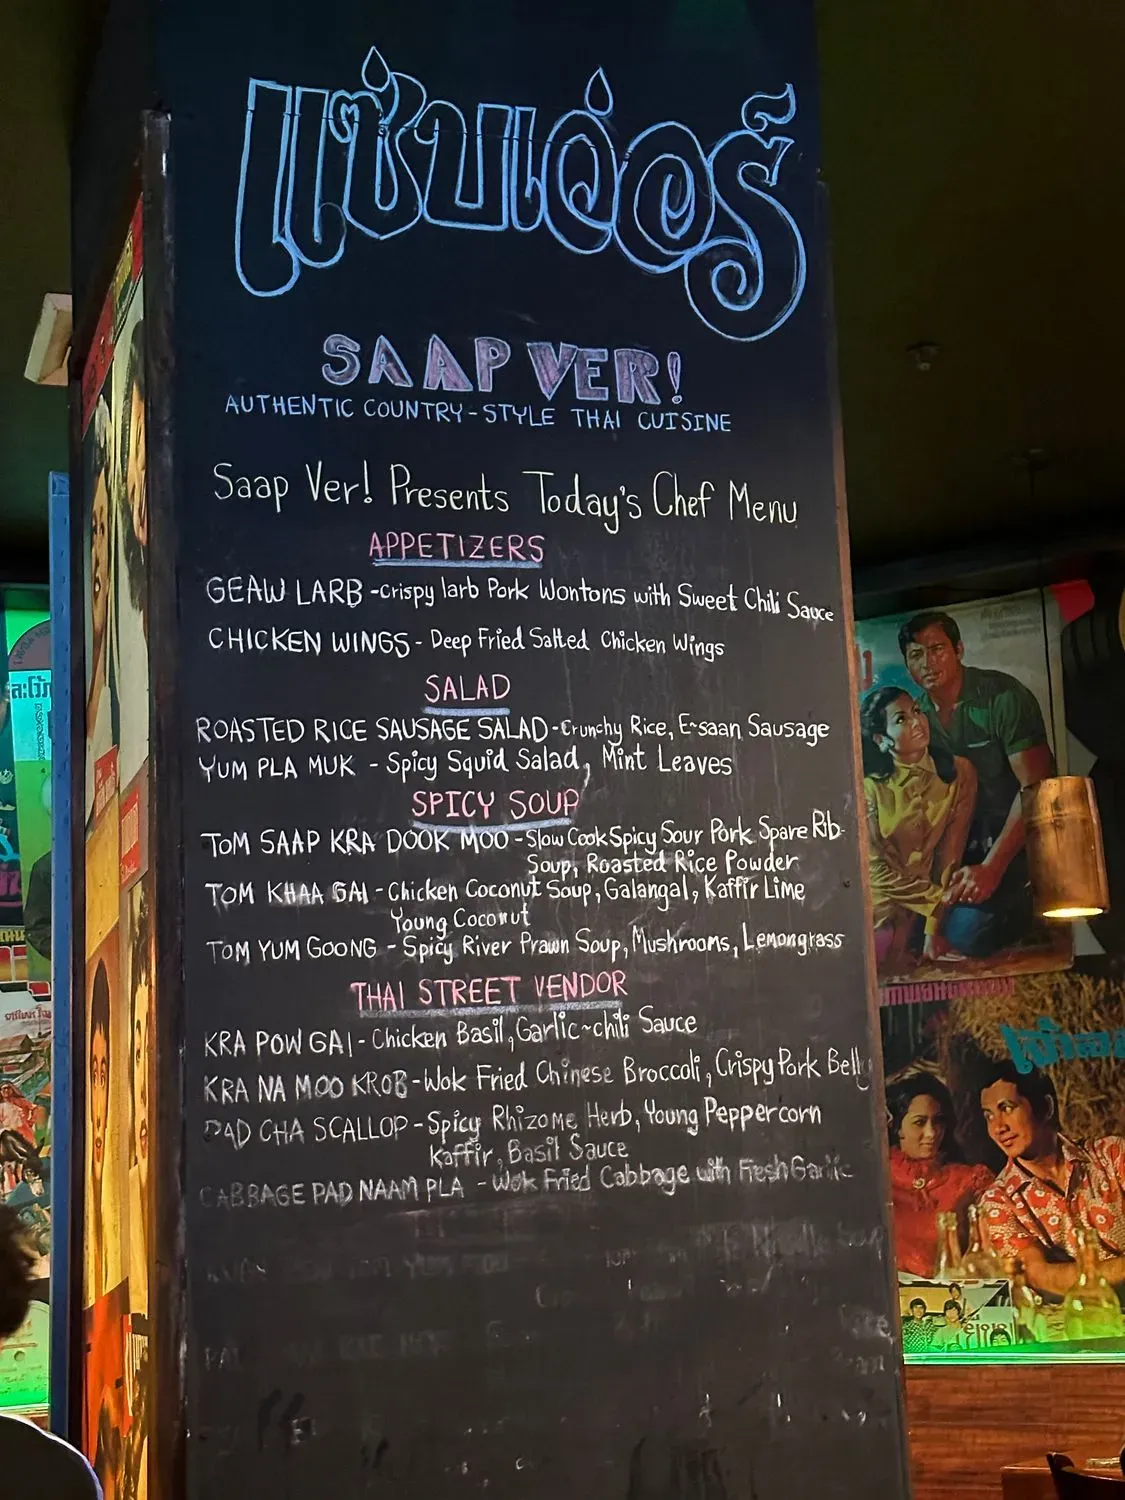 แซ่บเว่อร์
SAAP VER!
AUTHENTIC COUNTRY-STYLE THAI CUISINE
Saap Ver! Presents Today's Chef Menu
APPETIZERS
GEAW LARB - crispy larb Pork Wontons with Sweet Chili Sauce
CHICKEN WINGS - Deep Fried Salted Chicken Wings
SALAD
ROASTED RICE SAUSAGE SALAD - Crunchy Rice, E-saan Sausage
YUM PLA MUK - Spicy Squid Salad, Mint Leaves
SPICY SOUP
TOM SAAP KRA DOOK MOO - Slow Cook Spicy Sour Pork Spare Rib
Soup, Roasted Rice Powder
TOM KHAA GAI - Chicken Coconut Soup, Galangal, Kaffir Lime
Young Coconut
TOM YUM GOONG - Spicy River Prawn Soup, Mushrooms, Lemongrass
THAI STREET VENDOR
KRA POW GAI - Chicken Basil, Garlic~chili Sauce
KRA NA MOO KROB - Wok Fried Chinese Broccoli, Crispy Pork Belly
PAD CHA SCALLOP - Spicy Rhizome Herb, Young Peppercorn
Kaffir, Basil Sauce
CABBAGE PAD NAAM PLA - Wok Fried Cabbage with Fresh Garlic